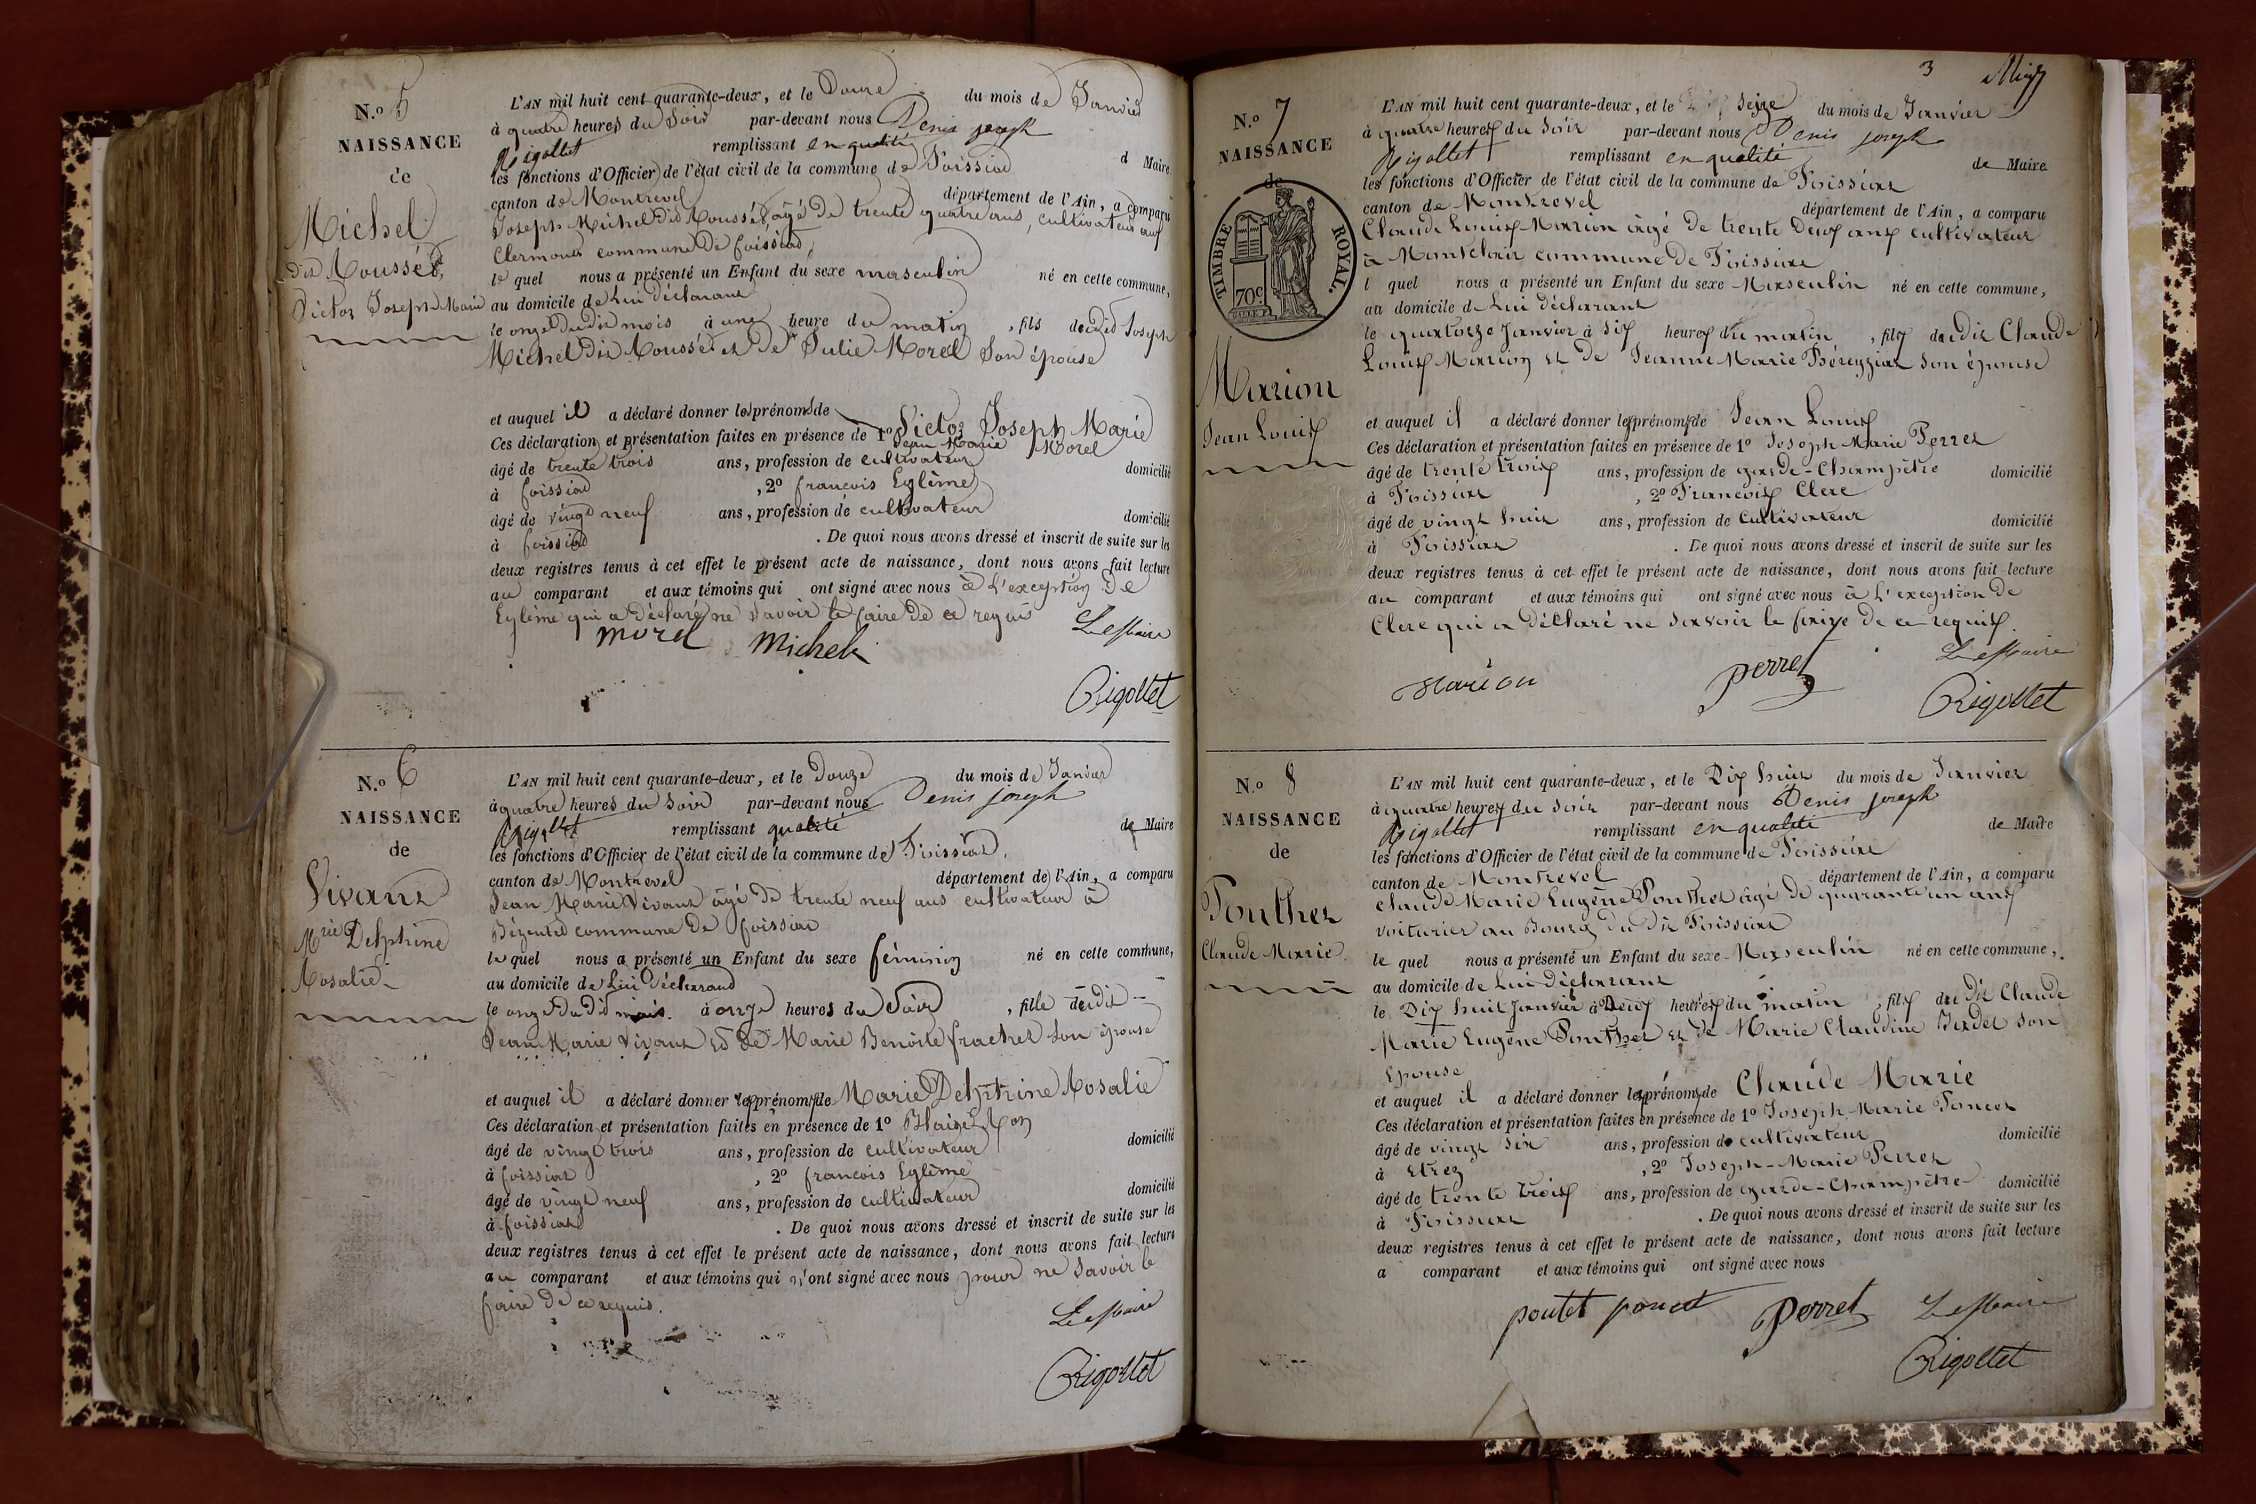 N.o 5
NAISSANCE
de
Michel
dit Roussét
Victor Joseph Marie
L'AN mil huit cent quarante-deux, et le Douze du mois de Janvier
à quatre heures du Soir par-devant nous Denis joseph
Rigollet remplissant en qualité d Maire
les fonctions d'Officier de l'état civil de la commune de Foissiat
canton de Montrevel département de l'Ain, a comparu
Joseph Michel dit Rousset âgé de trente quatre ans, cultivateur aux
Clermonts commune de foissiat
le quel nous a présenté un Enfant du sexe masculin né en cette commune,
au domicile de Lui déclarant
le onze du dit mois à une heure du matin, fils dudit Joseph
Michel dit Rousset et de Julie Morel Son épouse
et auquel il a déclaré donner les prénoms de Victor Joseph Marie
Ces déclaration et présentation faites en présence de 1º Jean Marie Morel
âgé de trente trois ans, profession de cultivateur domicilié
à foissiat , 2º francois Eglème
âgé de vingt neuf ans, profession de cultivateur domicilié
à foissiat . De quoi nous avons dressé et inscrit de suite sur les
deux registres tenus à cet effet le présent acte de naissance, dont nous avons fait lecture
au comparant et aux témoins qui ont signé avec nous à L'exception De
Eglème qui a déclaré ne savoir le faire de ce requis
morel Michel Le Maire
Rigollet
N.o 6
NAISSANCE
de
Vivant
Mrie Delphine
Rosalie
L'AN mil huit cent quarante-deux, et le Douze du mois de Janvier
à quatre heures du Soir par-devant nous Denis joseph
Rigollet remplissant qualité de Maire
les fonctions d'Officier de l'état civil de la commune de Foissiat,
canton de Montrevel département de l'Ain, a comparu
Jean Marie Vivant âgé de trente neuf ans cultivateur à
Bézentet commune de foissiat
le quel nous a présenté un Enfant du sexe féminin né en cette commune,
au domicile de Lui Déclarant
le onze du dit mois. à onze heures du Soir , fille dudit
Jean Marie Vivant et de Marie Benoite frachet son épouse
et auquel il a déclaré donner les prénoms de Marie Delphine Rosalie
Ces déclaration et présentation faites en présence de 1º Blaise Ron
âgé de vingt trois ans, profession de cultivateur domicilié
à foissiat , 2º francois Eglème
âgé de vingt neuf ans, profession de cultivateur domicilié
à foissiat . De quoi nous avons dressé et inscrit de suite sur les
deux registres tenus à cet effet le présent acte de naissance, dont nous avons fait lecture
au comparant et aux témoins qui n'ont signé avec nous pour ne Savoir le
faire de ce requis. Le Maire
Rigollet
3
N.o 7
NAISSANCE
de
TIMBRE ROYAL.
70c
Marion
Jean Louis
L'AN mil huit cent quarante-deux, et le Seize du mois de Janvier
à quatre heures du Soir par-devant nous Denis joseph
Rigollet remplissant en qualité de Maire
les fonctions d'Officier de l'état civil de la commune de Foissiat
canton de Montrevel département de l'Ain, a comparu
Claude Louis Marion âgé de trente Deux ans cultivateur
à Montclair commune de Foissiat
l quel nous a présenté un Enfant du sexe Masculin né en cette commune,
au domicile de Lui déclarant
le quatorze Janvier à Six heures du matin , fils du dit Claude
Louis Marion et de Jeanne Marie Béreyziat son épouse
et auquel il a déclaré donner les prénoms de Jean Louis
Ces déclaration et présentation faites en présence de 1º Joseph Marie Perret
âgé de trente trois ans, profession de garde-Champêtre domicilié
à Foissiat , 2º François Clerc
âgé de vingt huit ans, profession de Cultivateur domicilié
à Foissiat . De quoi nous avons dressé et inscrit de suite sur les
deux registres tenus à cet effet le présent acte de naissance, dont nous avons fait lecture
au comparant et aux témoins qui ont signé avec nous à L'exception de
Clerc qui a déclaré ne savoir le faire de ce requis.
Marion perret Le Maire
Rigollet
N.o 8
NAISSANCE
de
Ponthet
Claude Marie
L'AN mil huit cent quarante-deux, et le Dix huit du mois de Janvier
à quatre heures du Soir par-devant nous Denis joseph
Rigollet remplissant en qualité de Maire
les fonctions d'Officier de l'état civil de la commune de Foissiat
canton de Montrevel département de l'Ain, a comparu
Claude Marie Eugène Ponthet âgé de quarante un ans
voiturier au Bourg du dit Foissiat
le quel nous a présenté un Enfant du sexe Masculin né en cette commune,
au domicile de Lui Déclarant
le Dix huit Janvier à Deux heures du matin , fils du dit Claude
Marie Eugène Ponthet et de Marie Claudine Jerdet son
Epouse
et auquel il a déclaré donner les prénoms de Claude Marie
Ces déclaration et présentation faites en présence de 1º Joseph Marie Poncet
âgé de vingt Six ans, profession de cultivateur domicilié
à Etrez , 2º Joseph-Marie Perret
âgé de trente trois ans, profession de garde-Champêtre domicilié
à Foissiat . De quoi nous avons dressé et inscrit de suite sur les
deux registres tenus à cet effet le présent acte de naissance, dont nous avons fait lecture
a comparant et aux témoins qui ont signé avec nous
poutet poncet Perret Le Maire
Rigollet